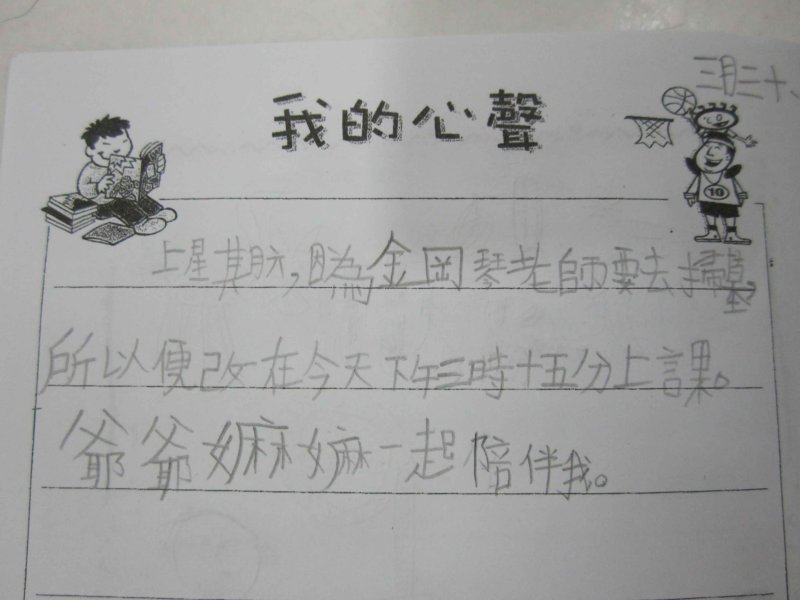 我的心聲
三月三十
上星期六,因為鋼琴老師要去掃墓
所以便改在今天下午三時十五分上課。
爺爺嫲嫲一起陪伴我。
10